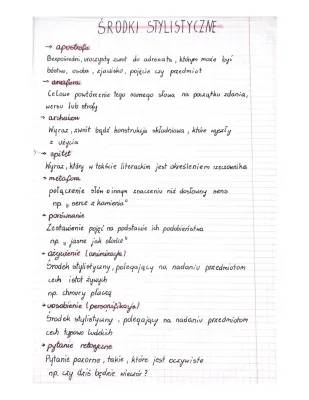 ŚRODKI STYLISTYCZNE
→ apostrofa
Bezpośredni, uroczysty zwrot do adresata, którym może być
bóstwo, osoba, zjawisko, pojęcie czy przedmiot
→ anafora
Celowe powtórzenie tego samego słowa na początku zdania,
wersu lub strofy
→ archaizm
Wyraz, zwrot bądź konstrukcja składniowa, które wyszły
z użycia
→ epitet
Wyraz, który w tekście literackim jest określeniem rzeczownika
→ metafora
połączenie słów o innym znaczeniu niż dosłowny sens
np. „serce z kamienia"
→ porównanie
Zestawienie pojęć na podstawie ich podobieństwa
np. „jasne jak słońce"
→ ożywienie (animizacja)
Środek stylistyczny, polegający na nadaniu przedmiotom
cech istot żywych
np. chmury płaczą
→ uosobienie (personifikacja)
Środek stylistyczny, polegający na nadaniu przedmiotom
cech typowo ludzkich
→ pytanie retoryczne
Pytanie pozorne, takie, które jest oczywiste
np. czy dziś będzie wieczór?